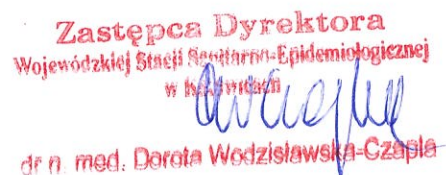 Zastępca Dyrektora
Wojewódzkiej Stacji Sanitarno-Epidemiologicznej
w Katowicach
dr n. med. Dorota Wodzisławska-Czapla